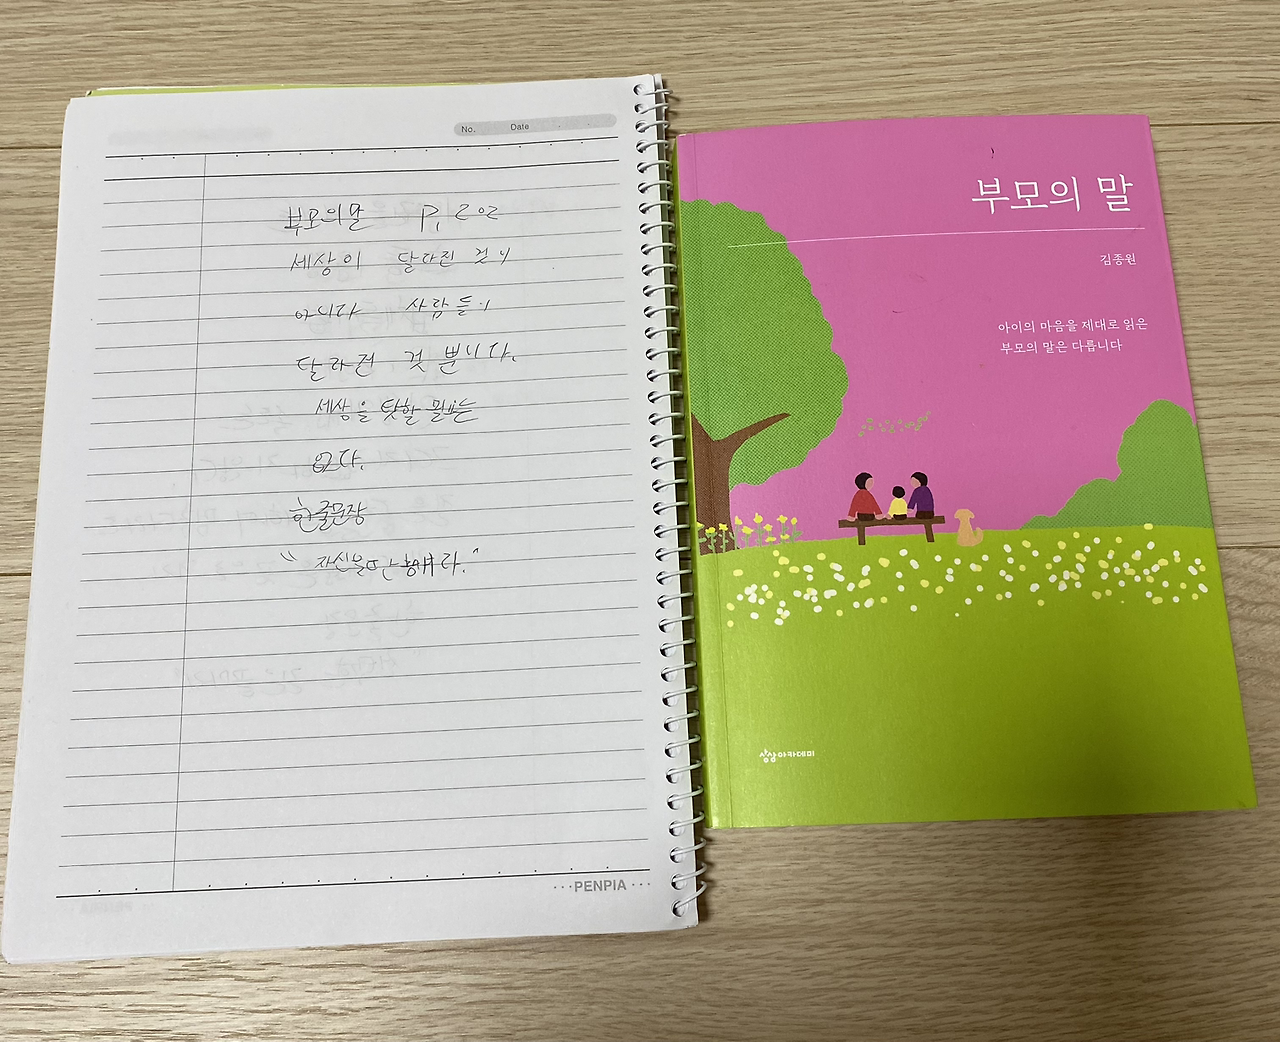 No. Date
부모의말 P, 202
세상이 달라진 것이
아니다 사람들이
달라진 것 뿐니다.
세상을 탓할 필요는
없다.
한글문장
"자신을 한다."
PENPIA
부모의 말
김종원
아이의 마음을 제대로 읽은
부모의 말은 다릅니다
상상아카데미